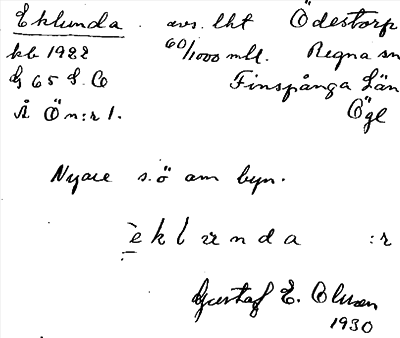 Eklunda. avs. lht Ödestorp
kb 1922 60/1000 mtl. Regna sn
G 65 S. O Finspånga Län
Å Ö n:r 1. Ögl
Nyare s.ö om byn.
èklúnda :r
Gustaf E. Olsson
1930